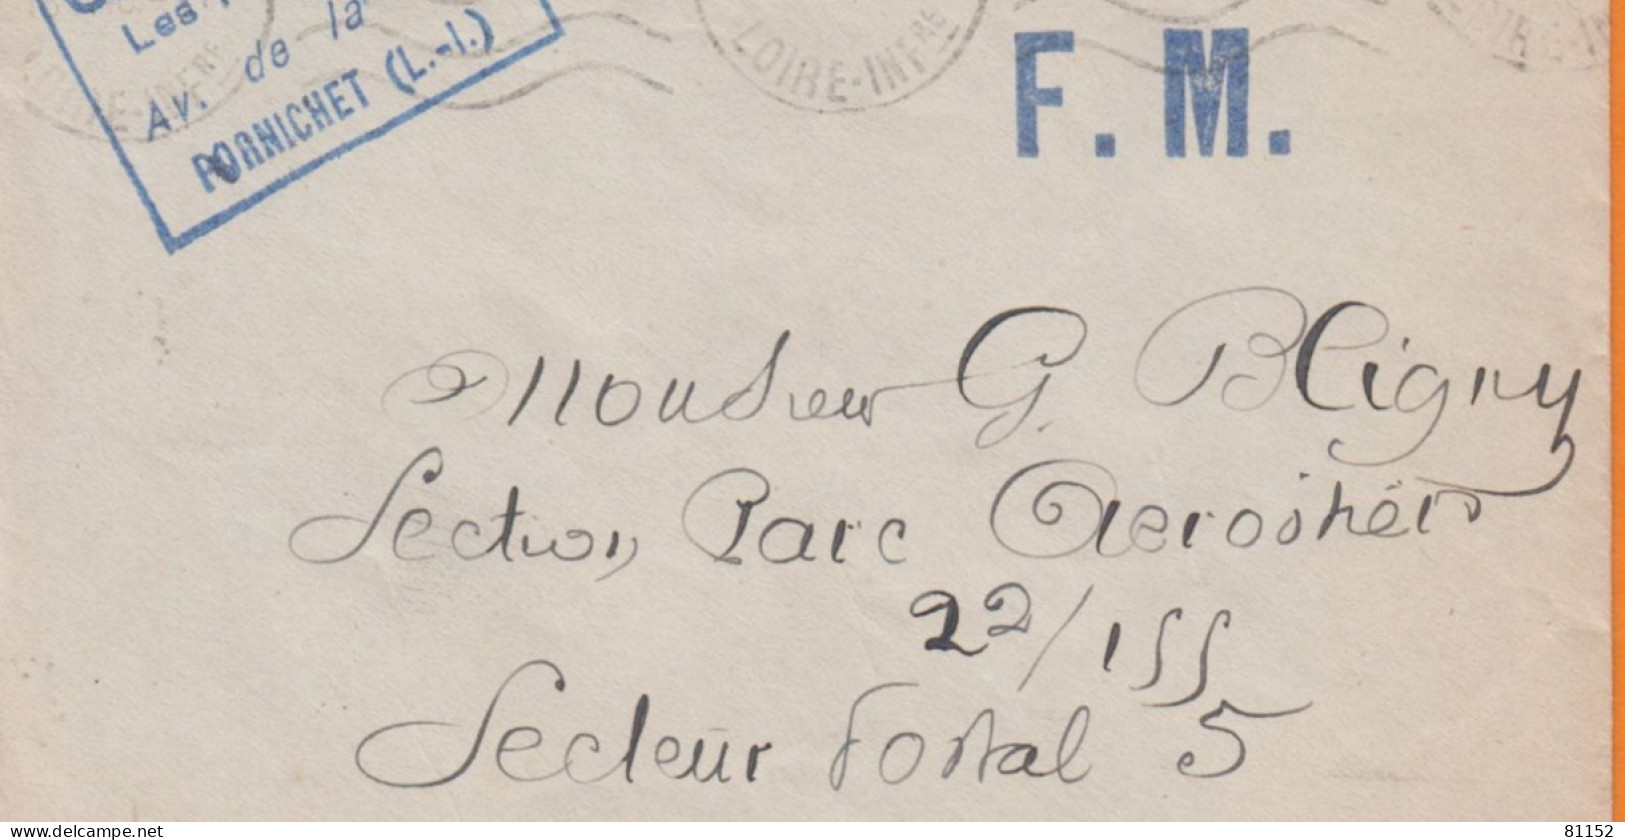 Les
Av. de la
PORNICHET (L.-I.)
LOIRE-INFRE
F. M.
Monsieur G. Bligny
Section Parc
22/155
Secteur Postal 5
delcampe.net
81152